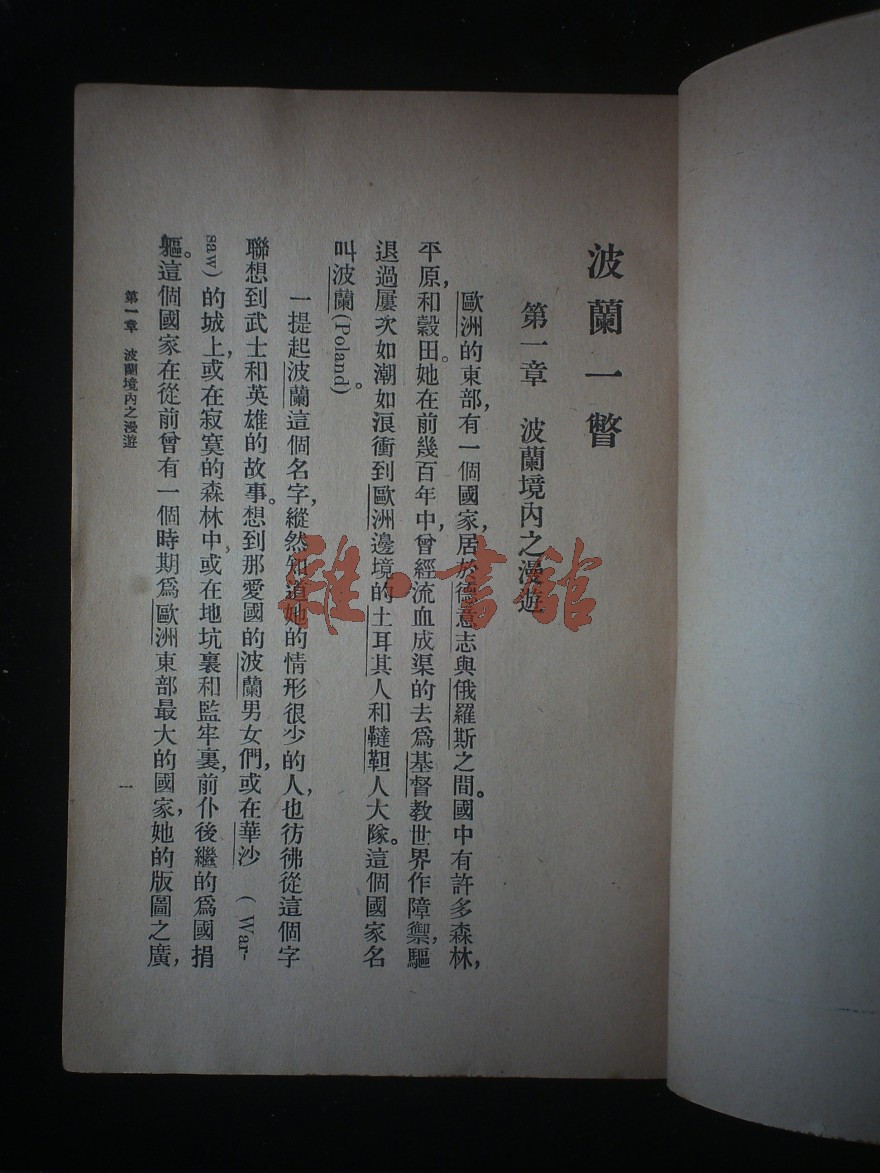 波蘭一瞥
第一章　波蘭境內之漫遊
歐洲的東部，有一個國家，居於德意志與俄羅斯之間。國中有許多森林，
平原，和穀田。她在前幾百年中，曾經流血成渠的去爲基督教世界作障禦，驅
退過屢次如潮如浪衝到歐洲邊境的土耳其人和韃靼人大隊。這個國家名
叫波蘭(Poland)。
一提起波蘭這個名字，縱然知道她的情形很少的人，也彷彿從這個字
聯想到武士和英雄的故事。想到那愛國的波蘭男女們，或在華沙 (War-
saw) 的城上，或在寂寞的森林中，或在地坑裏和監牢裏，前仆後繼的爲國捐
軀。這個國家在從前曾有一個時期爲歐洲東部最大的國家，她的版圖之廣，
第一章　波蘭境內之漫遊
一
雜·書館